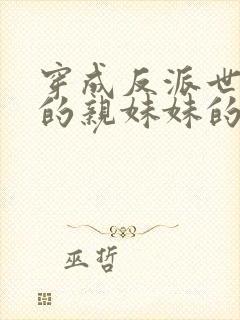 穿成反派世
的親妹妹的
巫哲